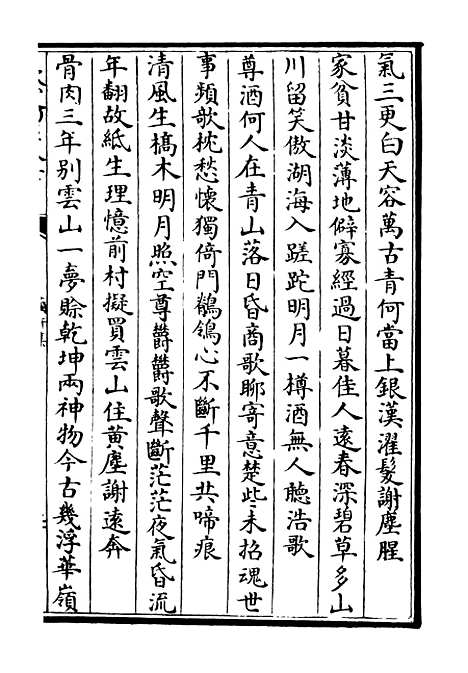 氣三更白天容萬古青何當上銀漢濯髮謝塵腥
家貧甘淡薄地僻寡經過日暮佳人遠春深碧草多山
川留笑傲湖海入蹉跎明月一樽酒無人聽浩歌
尊酒何人在青山落日昏商歌聊寄意楚些未招魂世
事頻歌枕愁懷獨倚門鶺鴒心不斷千里共啼痕
清風生槁木明月照空尊欝欝歌聲斷茫茫夜氣昏流
年翻故紙生理憶前村擬買雲山住黄塵謝遠奔
骨肉三年别雲山一夢賖乾坤兩神物今古幾浮華嶺